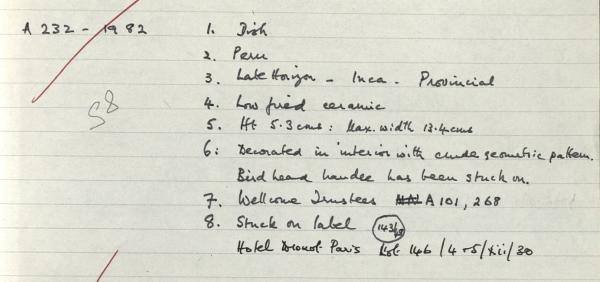 A 232 - 1982 1. Dish
2. Peru
3. Late Horizon - Inca - Provincial
4. Low fired ceramic
5. Ht 5.3 cms : Max. width 13.4 cms
58
6: Decorated in interior with crude geometric pattern.
Bird head handle has been stuck on.
7. Wellcome Trustees A 101, 268
8. Stuck on label 143/
Hotel Drouot Paris Lot 146 / 4-5/xii/30